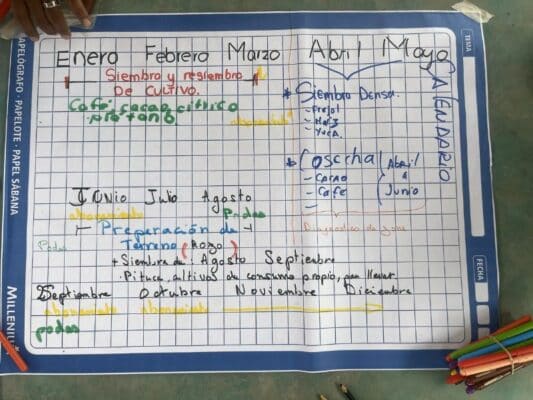 PAPELÓGRAFO · PAPELOTE · PAPEL SÁBANA
MILLENIU
TEMA
FECHA
Enero Febrero Marzo Abril Mayo
CALENDARIO
Siembra y resiembro
DE CULTIVO.
Café, cacao, citrico
platano
abonamiento
* Siembra Densa.
- Frejol
- Maiz
- Yuca.
* Cosccha
- Cacao
- Cafe
-
Abril
a
Junio
Diagnostico de zona
Junio Julio Agosto
abonamiento Podas
Preparación de
Podas Terreno (Rozo)
+ Siembra de: Agosto Septiembre
· Pituca, altivos de consumo propio, pan llevar
Septiembre Octubre Noviembre Diciembre
abonamiento abonamiento
podas